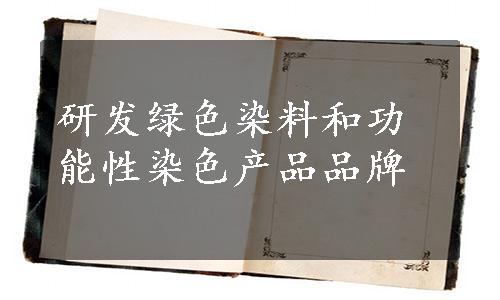 研发绿色染料和功
能性染色产品品牌